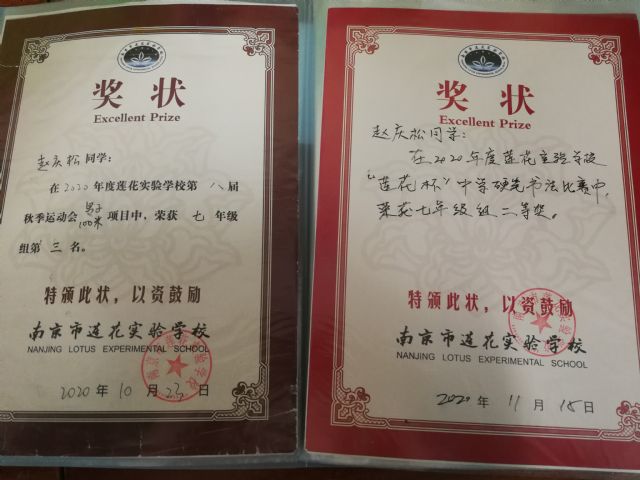 奖状
Excellent Prize
赵庆松同学：
在2020年度莲花实验学校第八届
秋季运动会男子100米项目中，荣获七年级
组第三名。
特颁此状，以资鼓励
南京市莲花实验学校
NANJING LOTUS EXPERIMENTAL SCHOOL
2020年10月23日
奖状
Excellent Prize
赵庆松同学：
在2020年度莲花实验学校
“莲花杯”中学硬笔书法比赛中，
荣获七年级组二等奖。
特颁此状，以资鼓励
南京市莲花实验学校
NANJING LOTUS EXPERIMENTAL SCHOOL
2020年11月15日